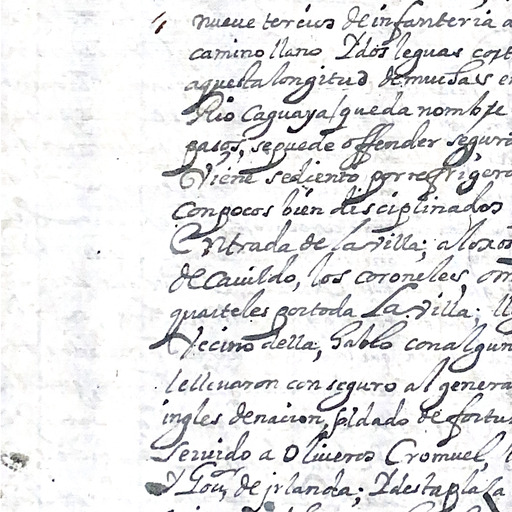 nueve tercios de infanteria a
camino llano Y dos leguas cort
aquesta longitud de muchas en
Rio Caguaya / queda nombre
pasos, se puede offender seguro
Viene sediento por refrigero
con pocos bien disciplinados
Entrada de la villa; aloxos
de Cauildo, los coroneles, om
quarteles por toda La Villa; ll
Vecino della, hablo con algun
le lleuaron con seguro al genera
ingles de nacion, soldado de fortu
Seruido a Oliueros Cromuel,
Y Gour de jrlanda; Y desta plasa